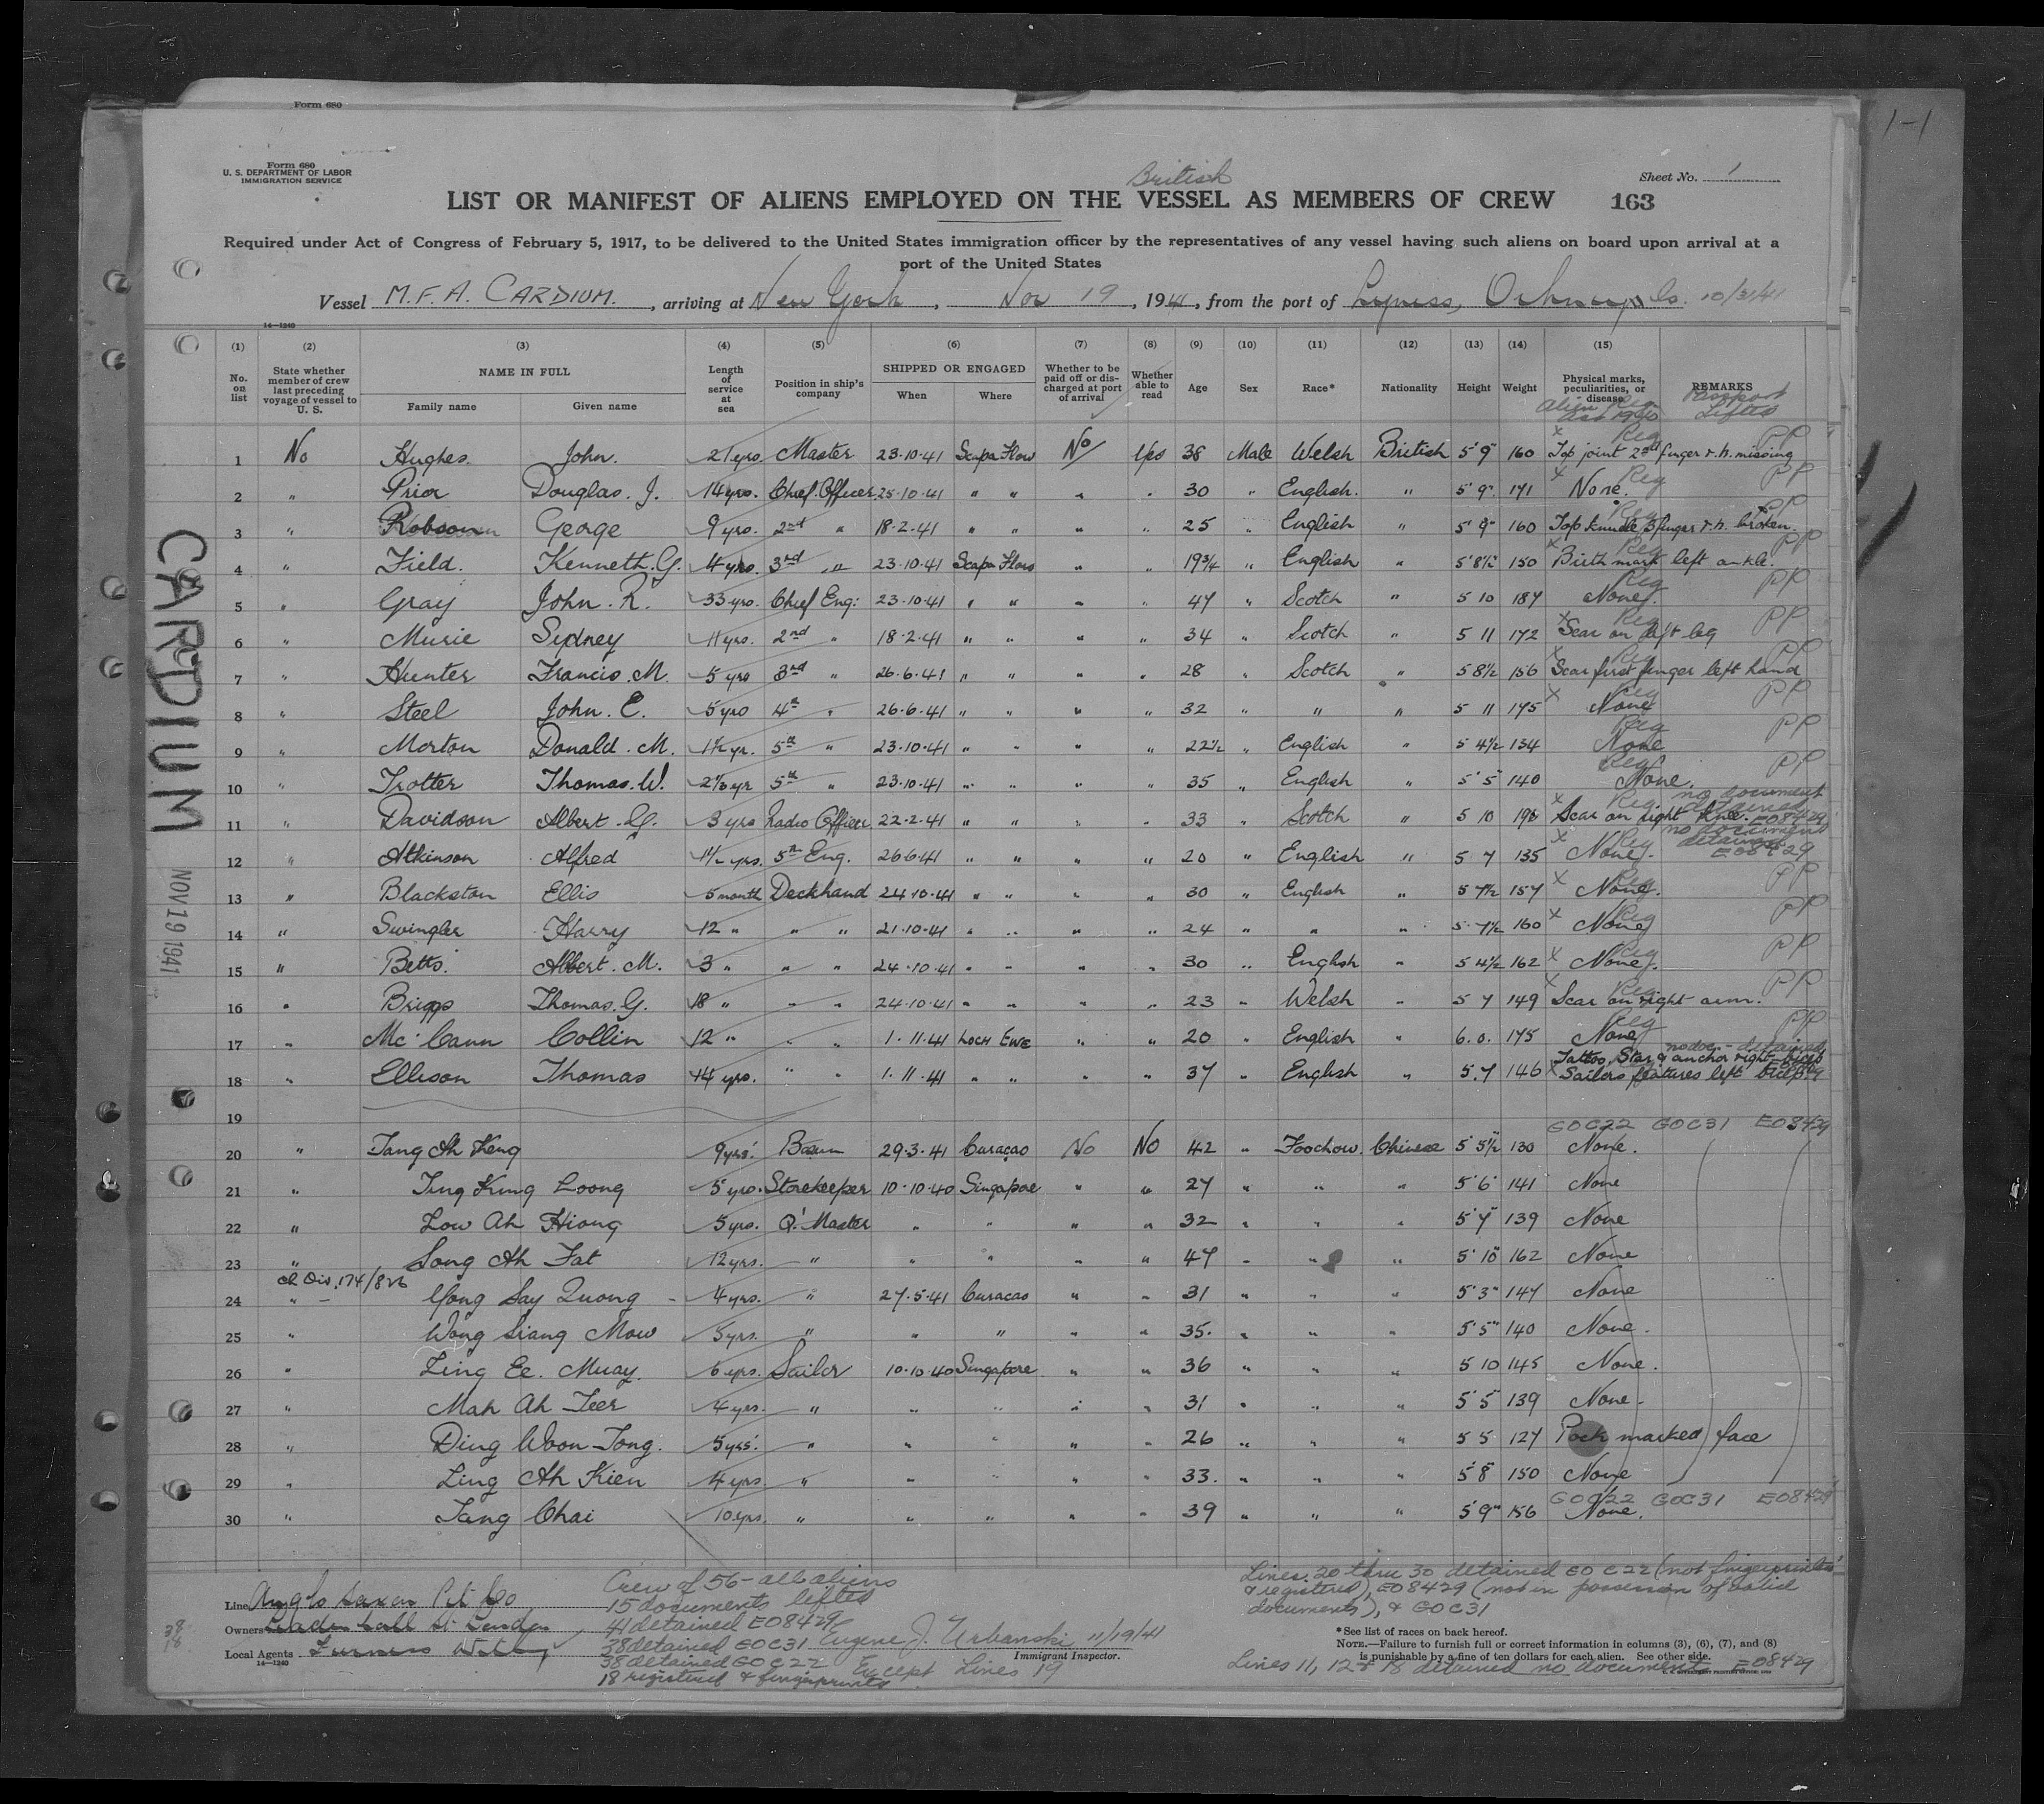 Form 680
1-1
Form 680
U. S. DEPARTMENT OF LABOR
IMMIGRATION SERVICE
Sheet No. 1
British
LIST OR MANIFEST OF ALIENS EMPLOYED ON THE VESSEL AS MEMBERS OF CREW 163
Required under Act of Congress of February 5, 1917, to be delivered to the United States immigration officer by the representatives of any vessel having such aliens on board upon arrival at a
port of the United States
Vessel M.F.A. CARDIUM., arriving at New York, Nov 19, 1941, from the port of Lyness, Orkney Is. 10/31/41
14—1240
(1) No. on list
(2) State whether member of crew last preceding voyage of vessel to U. S.
(3) NAME IN FULL Family name Given name
(4) Length of service at sea
(5) Position in ship's company
(6) SHIPPED OR ENGAGED When Where
(7) Whether to be paid off or discharged at port of arrival
(8) Whether able to read
(9) Age
(10) Sex
(11) Race*
(12) Nationality
(13) Height
(14) Weight
(15) Physical marks, peculiarities, or disease
REMARKS
Alien Reg. Act 1940
Passport Lifted
1 No Hughes. John. 21 yrs. Master 23.10.41 Scapa Flow No Yes 38 Male Welsh British 5' 9" 160 Top joint 2nd finger r.h. missing x Reg PP
2 " Prior Douglas. J. 14 yrs. Chief Officer 25.10.41 " " " " 30 " English. " 5' 9" 171 None. x Reg PP
3 " Robson George 9 yrs. 2nd " 18.2.41 " " " " 25 " English " 5' 9" 160 Top knuckle 3 finger r.h. broken. Reg PP
4 " Field. Kenneth. G. 4 yrs. 3rd " 23.10.41 Scapa Flow " " 19¾ " English " 5' 8½" 150 Birth mark left ankle. x Reg PP
5 " Gray John. R. 33 yrs. Chief Eng: 23.10.41 " " " " 47 " Scotch " 5 10 187 None. Reg PP
6 " Murie Sydney 11 yrs. 2nd " 18.2.41 " " " " 34 " Scotch " 5 11 172 Scar on left leg x Reg PP
7 " Hunter Francis. M. 5 yrs 3rd " 26.6.41 " " " " 28 " Scotch " 5 8½ 156 Scar first finger left hand x Reg PP
8 " Steel John. C. 5 yrs 4th " 26.6.41 " " " " 32 " " " 5 11 175 None x Reg PP
9 " Morton Donald. M. 1½ yr. 5th " 23.10.41 " " " " 22½ " English " 5 4½ 134 None Reg PP
10 " Trotter Thomas. W. 5th " 23.10.41 " " " " 35 " English " 5' 5" 140 None. Reg PP
11 " Davidson Albert. G. 3 yrs Radio Officer 22.2.41 " " " " 33 " Scotch " 5 10 Scar on right knee. x Reg no document detained E08429
12 " Atkinson Alfred 1½ yrs. 5th Eng. 26.6.41 " " " " 20 " English " 5 7 135 None. x Reg no document detained E08429
13 " Blackston Ellis 5 month Deckhand 24.10.41 " " " " 30 " English " 5 7½ 157 None. x Reg PP
14 " Swingler Harry 12 " " " 21.10.41 " " " " 24 " " " 5. 7½ 160 None x Reg PP
15 " Betts. Albert. M. 3 " " " 24.10.41 " " " " 30 " English " 5 4½ 162 None. x Reg PP
16 " Briggs Thomas. G. 18 " " " 24.10.41 " " " " 23 " Welsh " 5 7 149 Scar on right arm. x Reg PP
17 " Mc Cann Collin 12 " " " 1.11.41 LOCH EWE " " 20 " English " 6. 0. 175 None Reg PP
18 " Ellison Thomas 14 yrs. " " 1.11.41 " " " " 37 " English " 5. 7 146 Tattoo Star & anchor right bicep x Sailors features left bicep no doc - detained
19 GOC22 GOC31 E08429
20 " Tang Ah Keng 9 yrs. Bosun 29.3.41 Curaçao No No 42 " Foochow. Chinese 5' 5½" 130 None.
21 " Ting Kung Loong 5 yrs. Storekeeper 10.10.40 Singapore " " 27 " " " 5' 6" 141 None
22 " Low Ah Hiong 5 yrs. Q. Master " " " " 32 " " " 5' 7" 139 None
23 " Song Ah Fat 12 yrs. " " " " " 47 " " " 5' 10" 162 None
24 " Yong Say Quong 4 yrs. " 27.5.41 Curacao " " 31 " " " 5' 3" 147 None
25 " Wong Siang Mow 5 yrs. " " " " " 35. " " " 5' 5" 140 None.
26 " Ling Ee. Muay. 6 yrs. Sailor 10.10.40 Singapore " " 36 " " " 5 10 145 None.
27 " Mah Ah Teer 4 yrs. " " " " " 31 " " " 5' 5" 139 None.
28 " Ding Woon Tong. 5 yrs. " " " " " 26 " " " 5 5 127 Pock marked face
29 " Ling Ah Kien 4 yrs. " " " " " 33. " " " 5' 8" 150 None
30 " Tang Chai 10 yrs. " " " " " 39 " " " 5' 9" 156 None. GOC22 GOC31 E08429
CARDIUM
NOV 19 1941
Line Anglo Saxon Pet Co
Owners Leadenhall St London
Local Agents Furness Withy
14—1240
38
18
Crew of 56 - all aliens
15 documents lifted
41 detained E08429
38 detained EOC31
38 detained GOC22
18 registered & fingerprints
Eugene J. Urbanski 11/19/41
Immigrant Inspector.
Except Lines 19
Lines 20 thru 30 detained EO C22 (not fingerprinted
& registered), E08429 (not in possession of valid
documents), & GOC31
*See list of races on back hereof.
NOTE.—Failure to furnish full or correct information in columns (3), (6), (7), and (8)
is punishable by a fine of ten dollars for each alien. See other side.
Lines 11, 12 & 18 detained no documents E08429